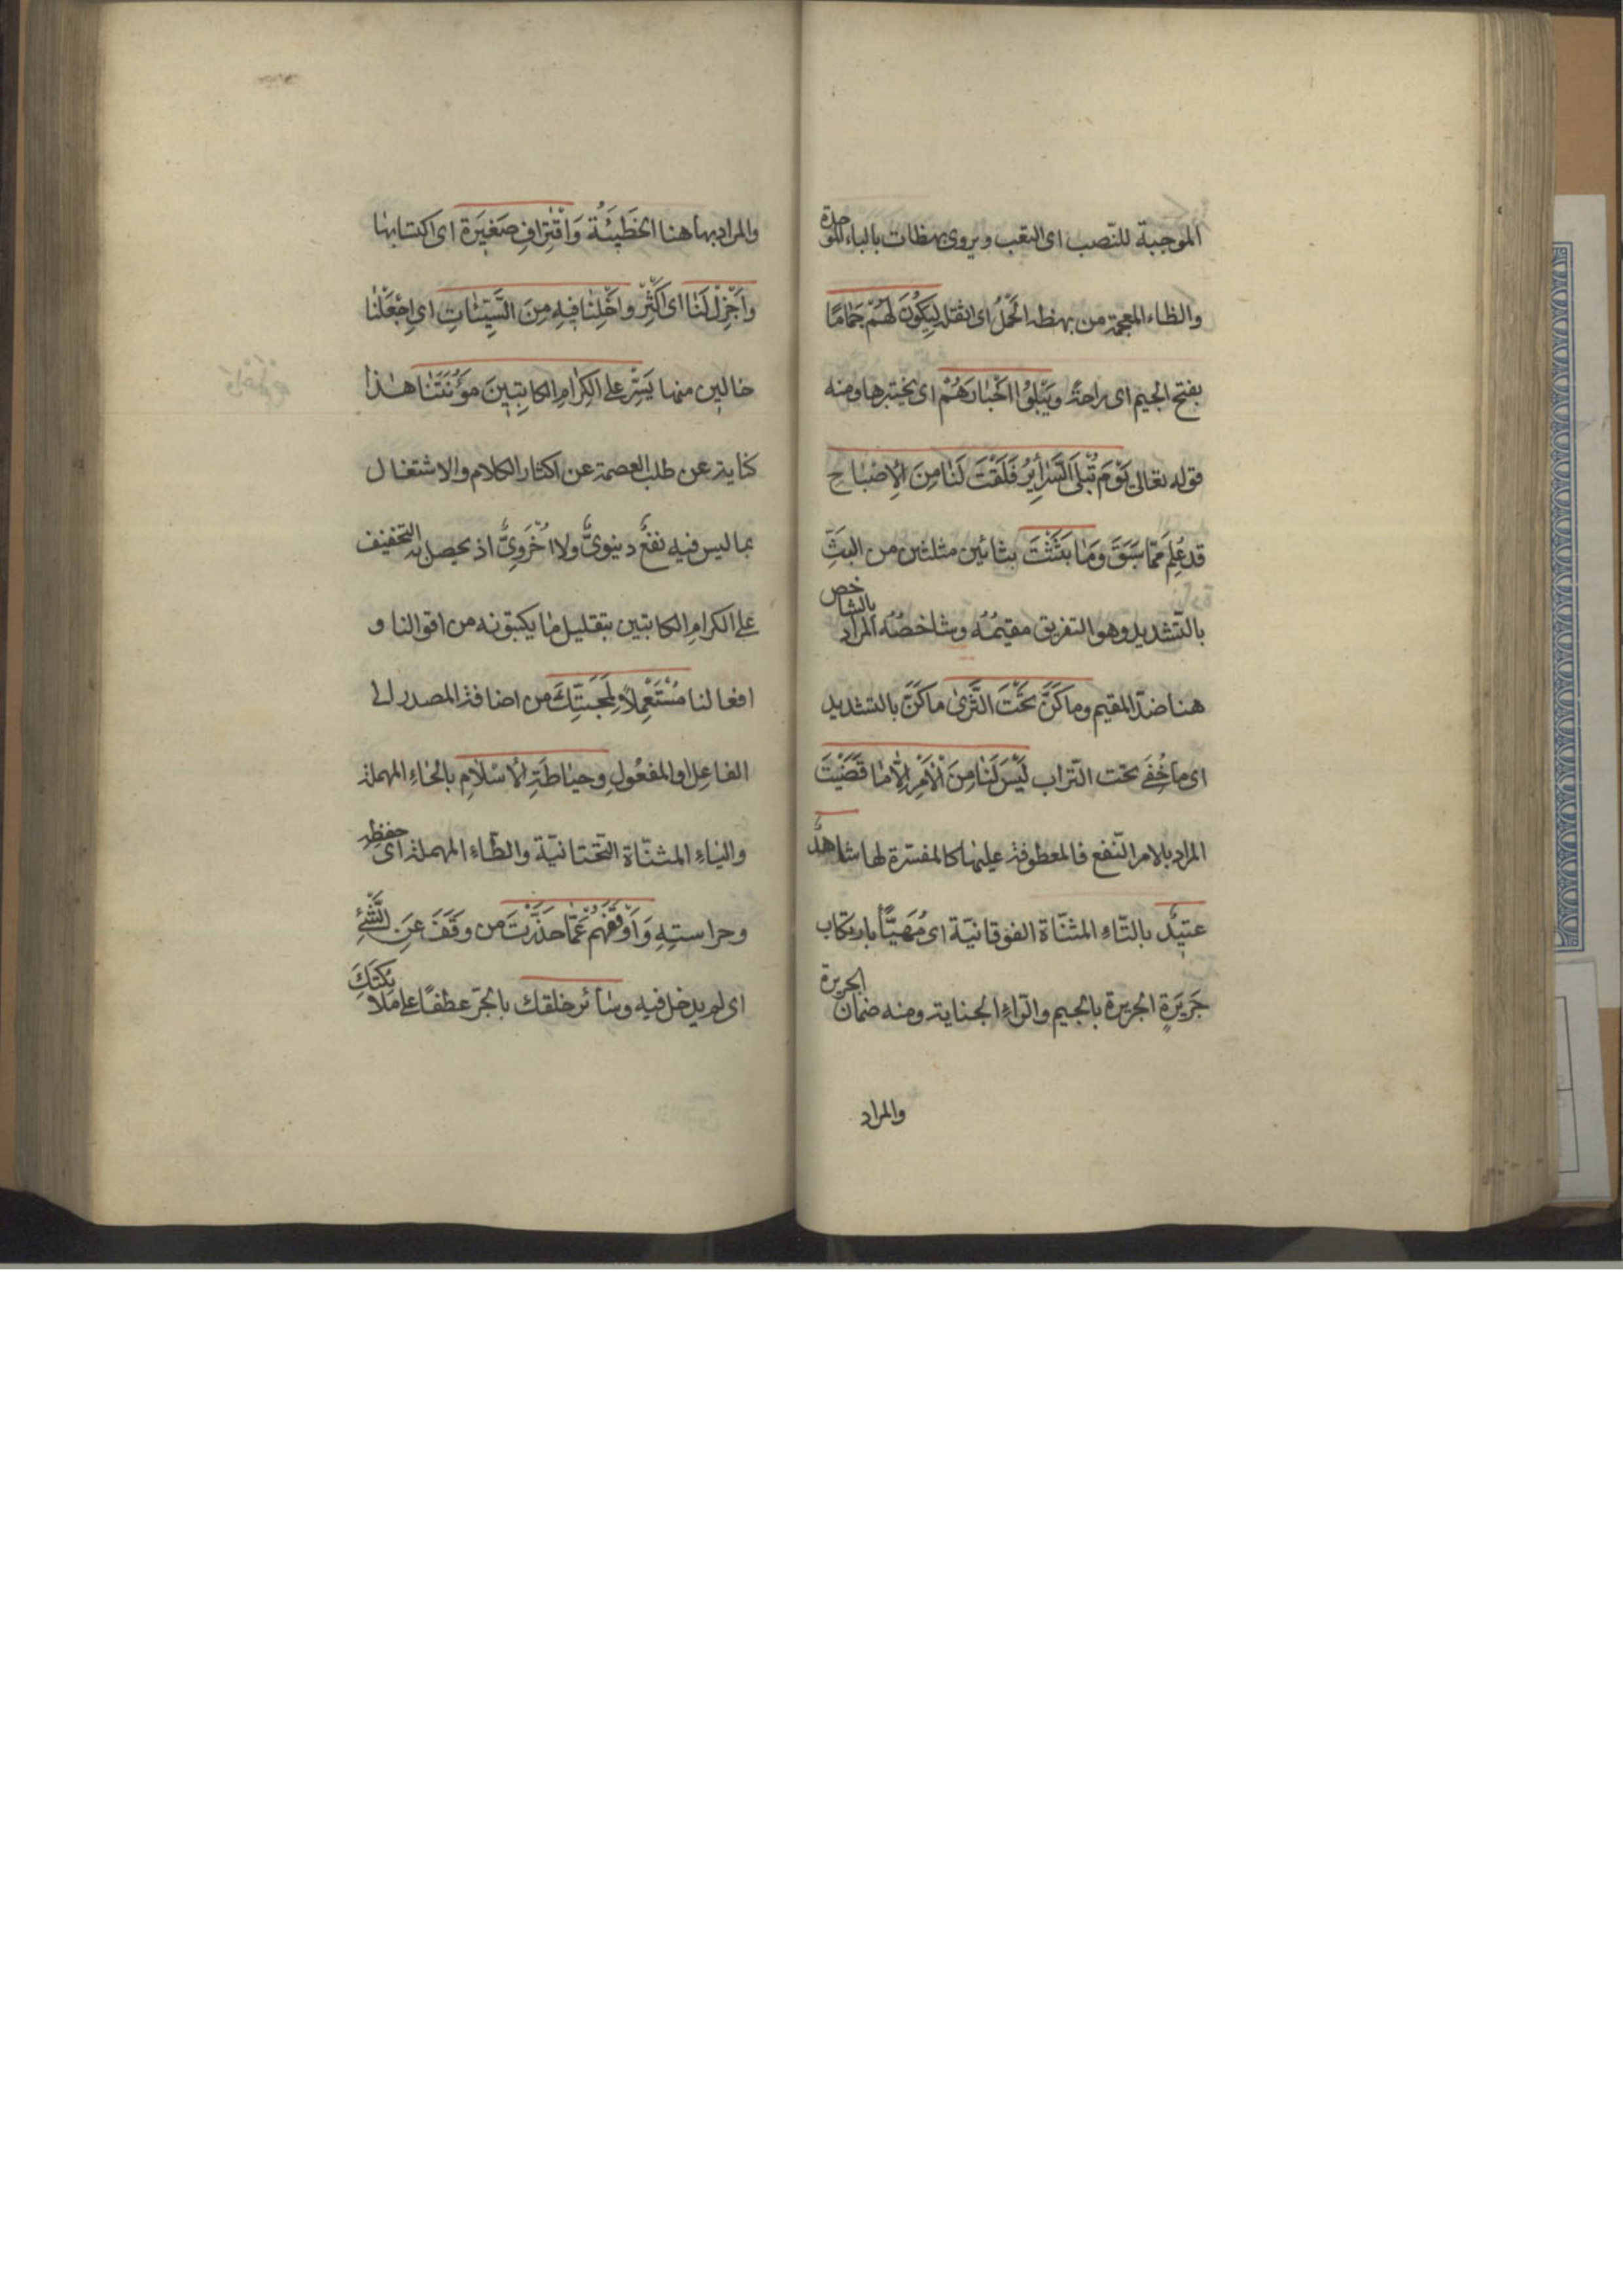 الموجبة للنّصب اى التعب ويروى بهظات بالباء الموحدة
والظاء المعجمة من بهظه الحَمْلُ اى اثقله لِيَكُونَ لَهُمْ جَمَامًا
بفتح الجيم اى راحةً ويَبْلُوُا اَخْبٰارَهُمْ اى يختبرها ومنه
قوله تعالى يَوْمَ تُبْلَى السَّرٰٓائِرُ فَلَقْتَ لَنٰا مِنَ الْاِصْبٰاحِ
قد عُلِمَ مّمٰا سَبَقَ وَمٰا بَثَثْتَ بثائين مثلثتين من البثِّ
بالتّشديد وهو التفريق مقيمُهُ وشاخصُهُ المراد بالشاخص
هنا ضدّ المقيم وما كَنَّ تَحْتَ الثَّرىٰ ماكَنَّ بالتشديد
اى ما خُفِىَ تحت التراب لَيْسَ لَنٰا مِنَ الْاَمْرِ اِلّٰا مٰا قَضَيْتَ
المراد بالامر النّفع فالمعطوفة عليها كالمفسّرة لها شاهدٌ
عتيدٌ بالتّاءِ المثنّاة الفوقانيّة اى مُهَيَّأ بارتكاب
جَرِيَرةٍ الجريرة بالجيم والرّاءِ الجناية ومنه ضمان الجريرة
والمراد
والمراد بها هنا الخَطَيئَةُ وَاقْتِرٰافِ صَغيَرة اى اكتسابها
وَاَجْزِلْ لَنٰا اى اَكْثِرْ واَخْلِنٰا فيهِ مِنَ السَّيِّئٰاتِ اى اِجْعَلْنٰا
خالين منها يَسِّرْ على الكِرٰامِ الكاتِبينَ مَؤُنَتَنٰا هٰذا
كناية عن طلب العصمة عن اكثار الكلام والاشتغال
بما ليس فيه نفعٌ دنيوىٌّ ولا اُخْرَوِىٌّ اذ يحصل به التخفيف
على الكرامِ الكاتبين بتقليل مٰا يكتبونه من اقوالنا و
افعالنا مُسْتَعْمِلاً لِمَحَبَّتِكَ من اضافة المصدر الى
الفاعِل او المفعُولِ وحيٰاطَةِ الْاِسْلٰامِ بالحٰاءِ المهملة
واليٰاءِ المثنّاة التحتانيّة والطّاءِ المهملة اى حفظه
وحراستِهِ وَاَوْقَفَهُمْ عَمّٰا حَذَّرْتَ من وقَفَ عَنِ الشَّئِ
اى لم يدخل فيه وسٰائر خلقك بالجرّ عطفًا على ملائكتك